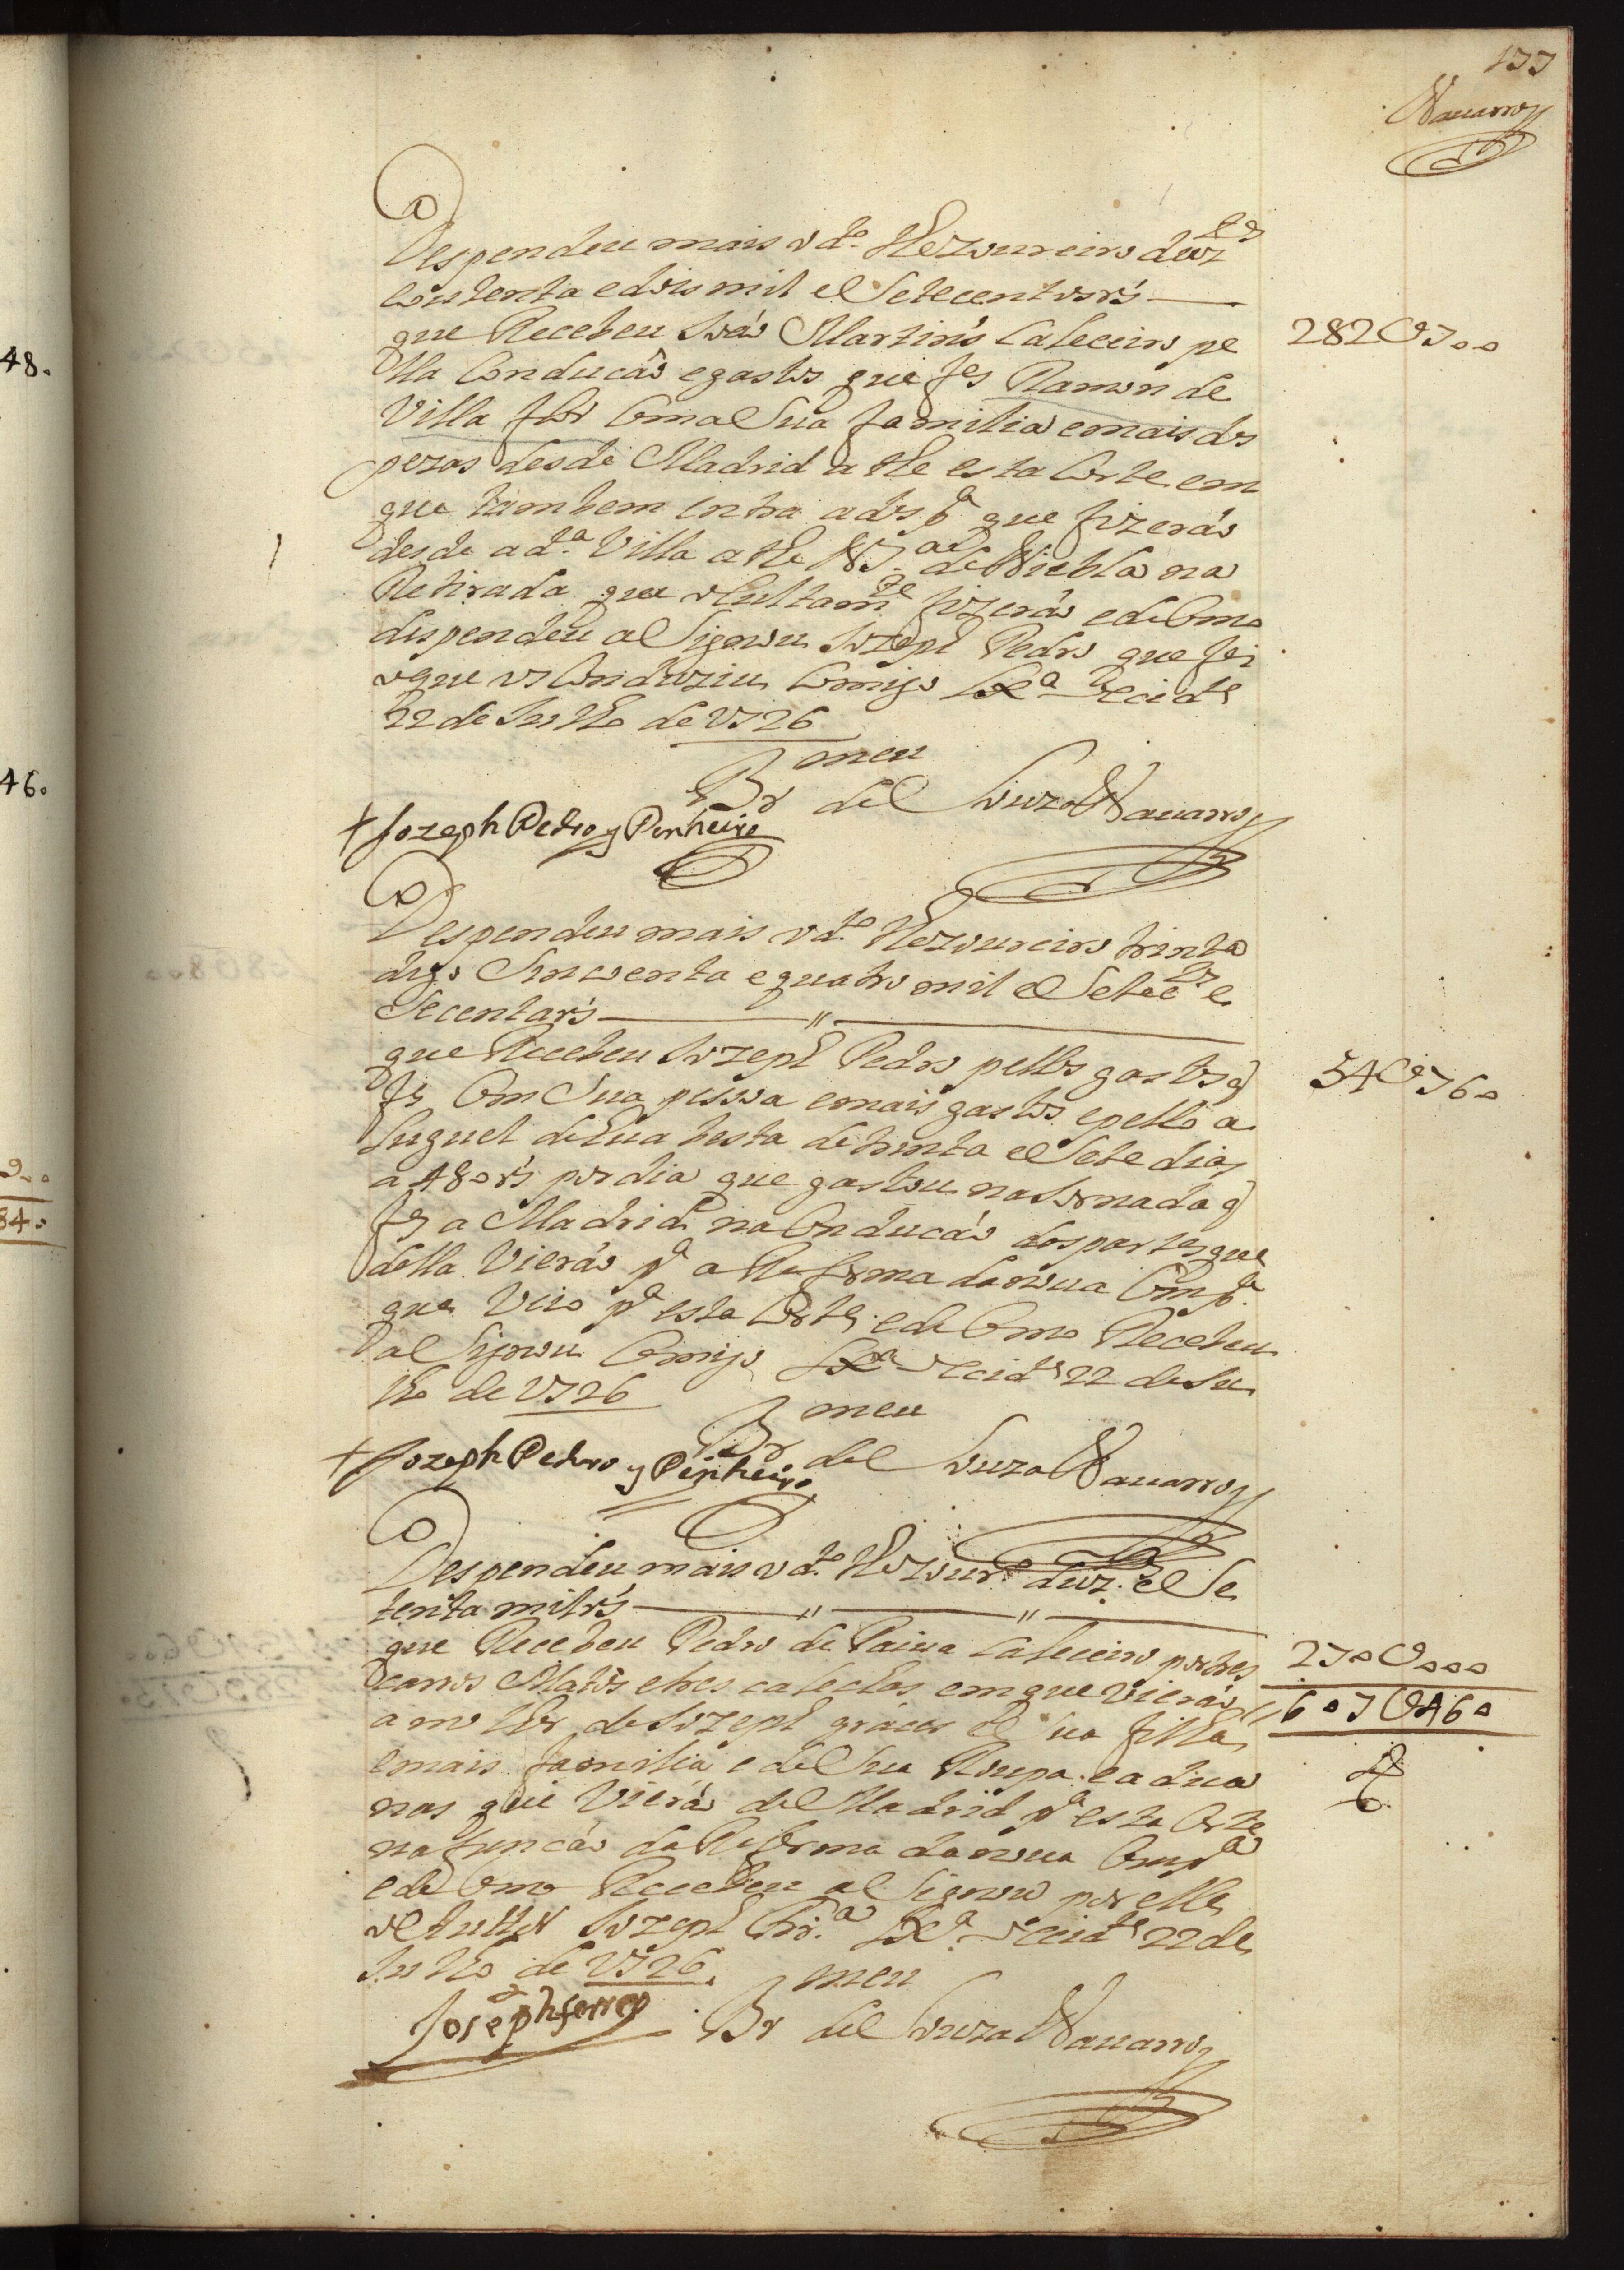 177
Nauarro
Despendeu mais o d.to Thezoureiro duz.tos
e outenta e dois mil e Setecentos rs
que Recebeu Joáo Martins Caleceiro pe
lla Conducáo e gastos que fes Ramon de
Villa flor Com a Sua familia e mais des
pezas desde Madrid a the esta Corte em
que tambem entra a desp.a que fizeráo
desde a d.a Villa a the de Niebla na
Retirada que ocultam.te fizeráo e de Como
despendeu a Signou Jozeph Pedro que foi
o que os Conduziu Comigo Lx.a occid.l
22 de Julho de 1726
282U700
Br.meu de Souza Nauarro
+ Jozeph Pedro y Pinheiro
Despendeu mais o d.to Thezoureiro trinta
digo Sincoenta e quatro mil e Setec.tos e
Secenta rs
que Recebeu Jozeph Pedro pellos gastos q
fes Com Sua pessoa e mais gastos e pello a
luguel de hua besta de trinta e Sete dias
a 480 rs por dia que gastou na Jornada q
fes a Madrid na Conducáo das partes que
della Vieráo p.a a Reforma da noua Comp.a
que Veio p.a esta Corte e de Como Recebeu
a Signou Comigo Lx.a occid.l 22 de Ju
lho de 1726
54U760
Br.meu de Souza Nauarro
+ Jozeph Pedro y Pinheiro
Despendeu mais o d.to Thezour.o duz.tos e Se
tenta mil rs
que Recebeu Pedro de Paiua Caleceiro por tres
carros Matos e tres calecas em que Vieráo
a molher de Jozeph graces e Sua filha
e mais familia e de Sua Roupa e adua
nas que Vieráo de Madrid p.a esta Corte
na funcáo da Reforma da noua Comp.a
e de Como Recebeu a Signou por elle
o Autor Jozeph Fr.a Lx.a occid.l 22 de
Julho de 1726
270U000
607U460
Br.meu de Souza Nauarro
Joseph ferrer
48.
46.
900
84.